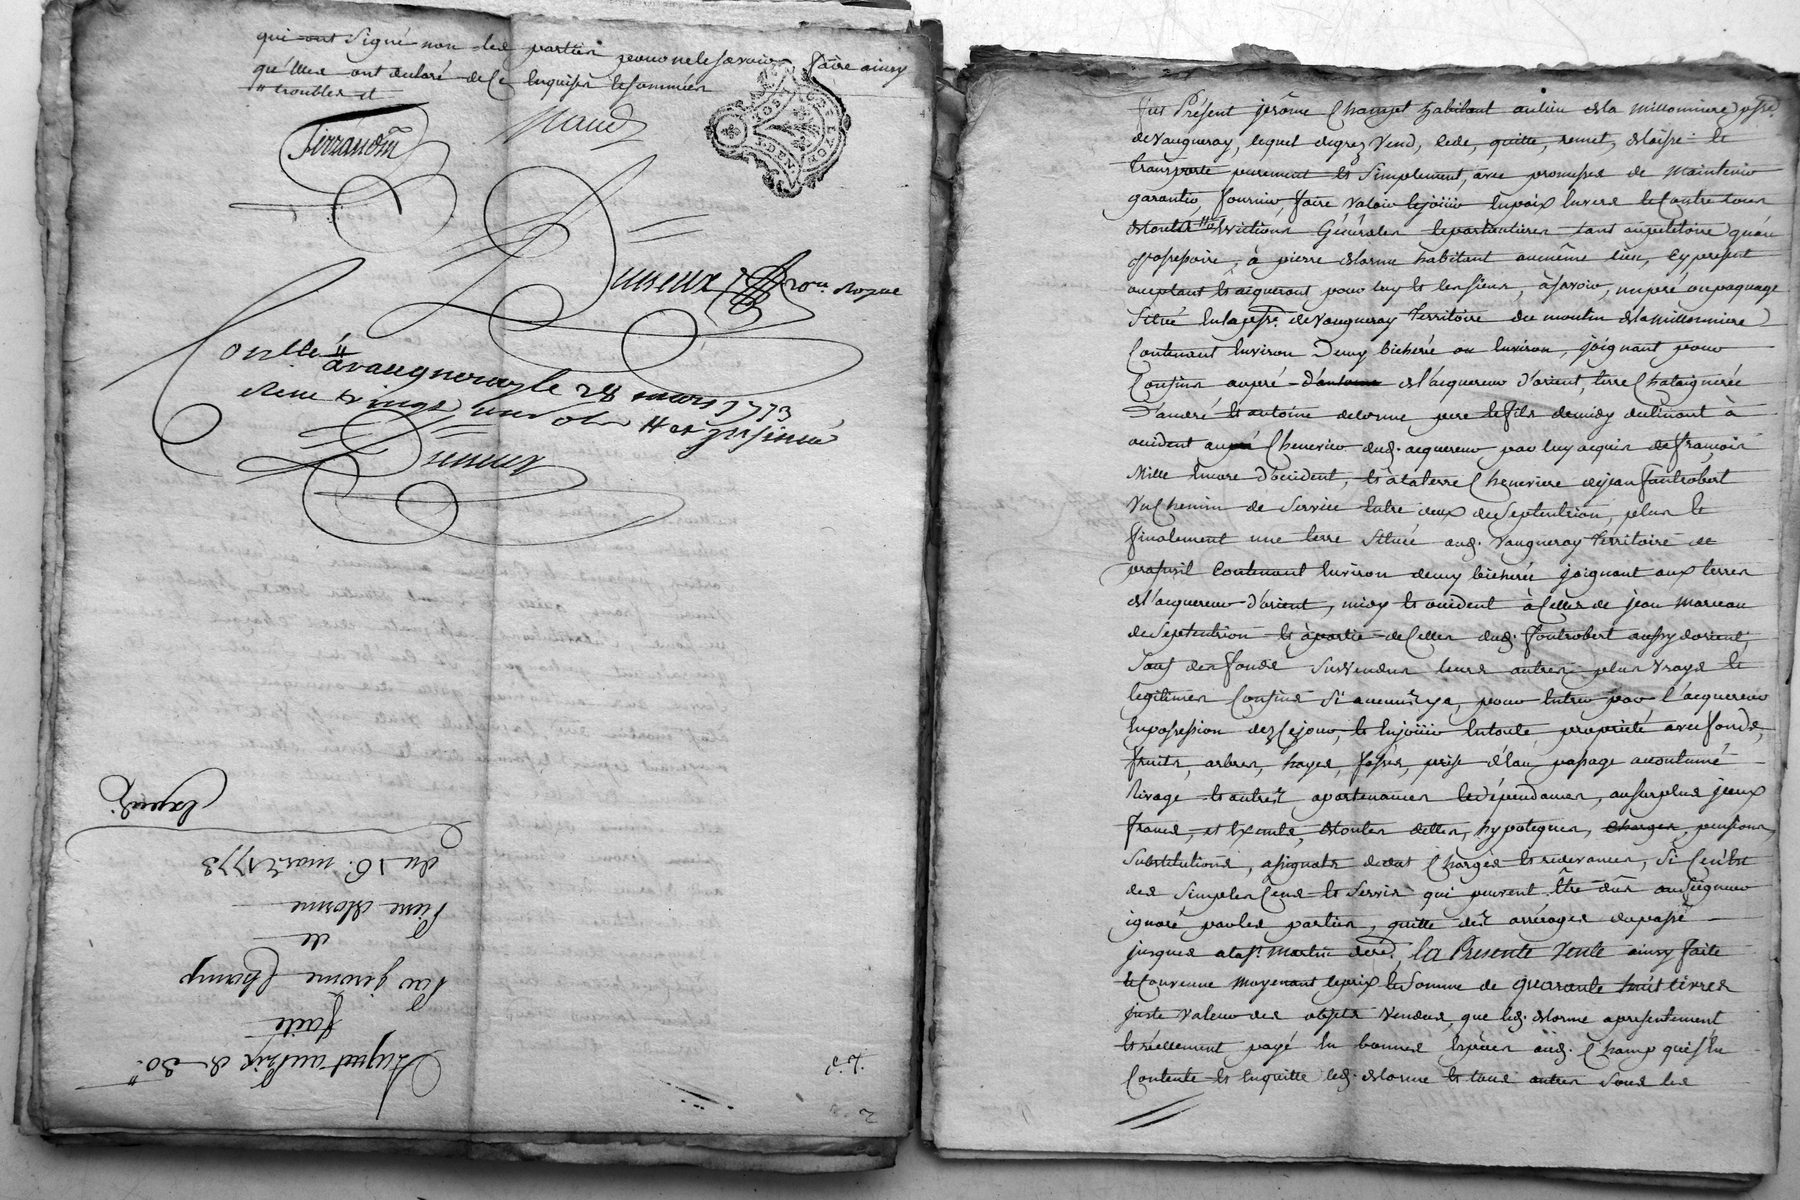 qui ont signé non les parties pour ne le savoir faire ainsy
qu'elles ont declaré de ce enquises et sommées
" troubles et
Ferrandin
GEN. LYON
Duneux
no.re royal
Con.llé à vaugneray le 28 mars 1773
Reçu vingt un sols
Duneux
Acquet au prix de 30"
faite
Par jérome Champ
de
Pierre delorme
du 16. mars 1773
Expédié
fut Présent jerôme Champt habitant au lieu de la Millonniere psse.
de Vaugneray, lequel de grez vend, cede, quitte, remet, delaisse et
transporte purement et simplement, avec promesse de maintenir
garantir, fournir, faire valoir et jouir en paix envers et contre tous
de toutes " evictions générales et particulieres tant au petitoire qu'au
possessoire, à pierre delorme habitant au même lieu, cy présent
acceptant et aiquerant pour luy et les siens, à savoir, un pré ou paquage
Situé en la psse. de Vaugneray territoire du moulin de la Millonniere
Contenant environ Demy bicherée ou environ, joignant pour
Confins au pré de l'acquereur d'orient, terre Chataignerée
d'andré et antoine delorme pere et fils de midy declinant à
occident au Chenevier dud. acquereur par luy acquis de françois
Mille encore d'occident, et à la terre Cheneviere de jean fontrobert
un Chemin de Service entre deux de Septentrion, plus et
finalement une terre située aud. Vaugneray territoire de
contenant environ demy bicherée joignant aux terres
de l'acquereur d'orient, midy et occident à Celles de jean Moreau
de Septentrion et à partie de Celles dud. fontrobert aussy d'orient
Sauf des fonds survendus leurs autres plus vrays et
legitimes Confins si aucuns y a, pour entrer par l'acquereur
en possession dez Cejour, et en jouir en toute proprieté avec fonds,
fruits, arbres, hayes, fossés, prise d'eau passage accoutumé
Rivage et autres, apartenances et dépendances, au surplus jceux
francs, et exempts, de toutes dettes, hypoteques, charges, pensions,
substitutions, asignats de dot Charges et redevances, si Ce n'est
des simples Cens et Servis qui peuvent être dûs au Seigneur
ignoré par les parties, quitte des arrérages du passé
jusques a la st. Martin dere. la Présente Vente ainsy faite
et Convenue moyenant le prix et Somme de quarante huit livres
juste valeur des objets vendus, que led. delorme a presentement
et réellement payé en bonnes Especes aud. Champ qui s'en
Contente et en quitte led. delorme et tous autres sous les